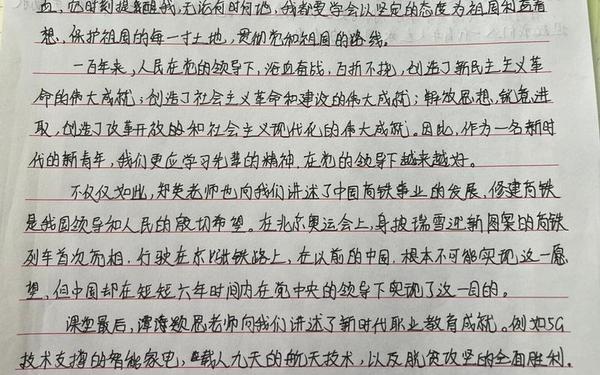 也时刻提醒我,无论何时何地,我都要学会以坚定的态度为祖国利益着
想,保护祖国的每一寸土地,贯彻党和祖国的路线。
一百年来,人民在党的领导下,浴血奋战,百折不挠,创造了新民主主义革
命的伟大成就;创造了社会主义革命和建设的伟大成就;解放思想,锐意进
取,创造了改革开放的和社会主义现代化的伟大成就。因此,作为一名新时
代的新青年,我们更应学习先辈的精神,在党的领导下越来越好。
不仅仅如此,郑英老师也向我们讲述了中国高铁事业的发展,修建高铁
是我国领导和人民的殷切希望。在北京奥运会上,身披瑞雪迎新图案的高铁
列车首次亮相,行驶在京张铁路上,在以前的中国,根本不可能实现这一愿
望,但中国却在短短六年时间内在党中央的领导下实现了这一目的。
课堂最后,谭老师向我们讲述了新时代职业教育成就。例如5G
技术支撑的智能家电,载人九天的航天技术,以及脱贫攻坚的全面胜利。